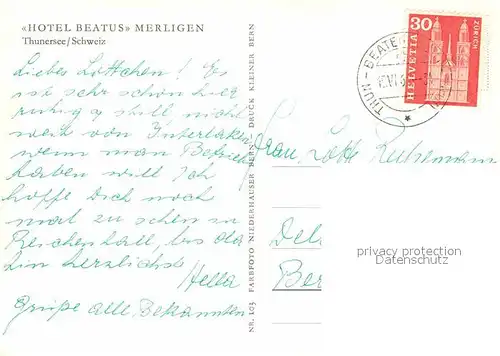 «HOTEL BEATUS» MERLIGEN
Thunersee/Schweiz
Liebes Lottchen! Es
ist sehr schön hier
ruhig & still, nicht
weit von Interlaken
wenn man Betrieb
haben will Ich
hoffe Dich noch
mal zu sehen in
Reichenhall, bis da
hin herzlichst
Hella
Grüße alle Bekannten
NR. 103 FARBFOTO NIEDERHAUSER BERN DRUCK KLEINER BERN
30
HELVETIA
ZÜRICH
THUN-BEATE
Frau Lotte
Del
Ber
privacy protection
Datenschutz